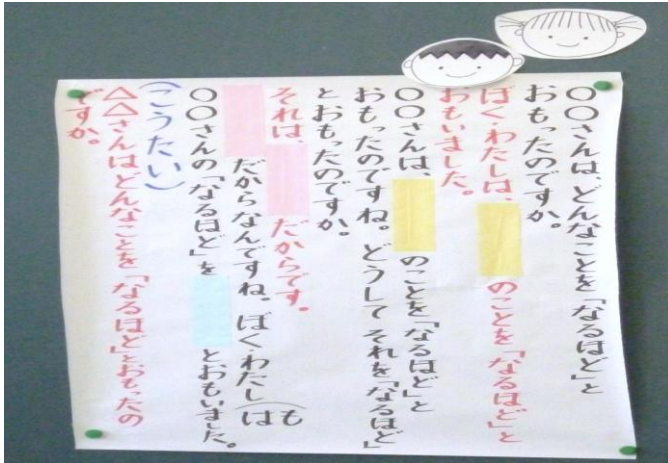 〇〇さんは、どんなことを「なるほど」と
おもったのですか。
ぼく・わたしは、のことを「なるほど」と
おもいました。
〇〇さんは、のことを「なるほど」と
おもったのですね。どうしてそれを「なるほど」
とおもったのですか。
それは、だからです。
だからなんですね。ぼくわたし(はも
〇〇さんの「なるほど」をとおもいました。
(こうたい)
△△さんはどんなことを「なるほど」とおもったの
ですか。